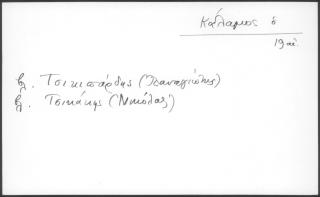 Κάλαμος ὁ
19 αἰ.
βλ. Τσικισάρδης (Παναγιώτης)
βλ. Τσικάκης (Νικόλας)